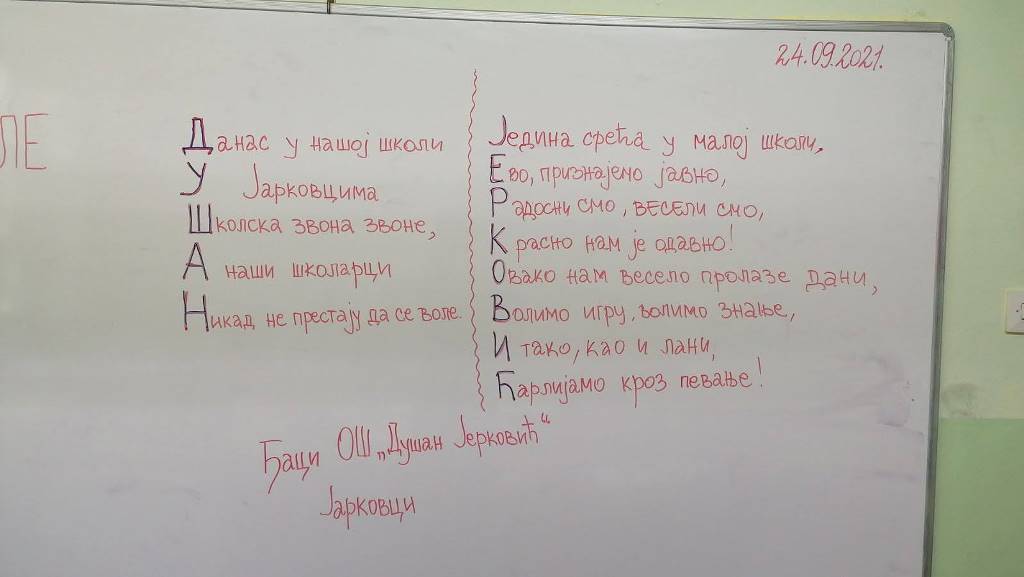 24.09.2021.
ЛЕ
Данас у нашој школи
У Јарковцима
Школска звона звоне,
А наши школарци
Никад не престају да се воле.
Једина срећа у малој школи,
Ево, признајемо јавно,
Радосни смо, весели смо,
Красно нам је одавно!
Овако нам весело пролазе дани,
Волимо игру, волимо знање,
И тако, као и лани,
Ћарлијамо кроз певање!
Ђаци ОШ „Душан Јерковић“
Јарковци